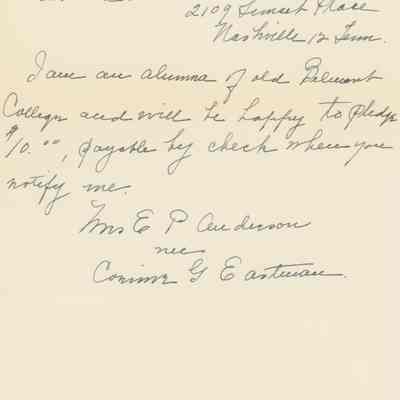 2109 Sunset Place
Nashville 12 Tenn.
I am an alumna of old Belmont
College and will be happy to pledge
$10.00, payable by check when you
notify me.
Mrs E P Anderson
nee
Corinne G Eastman.